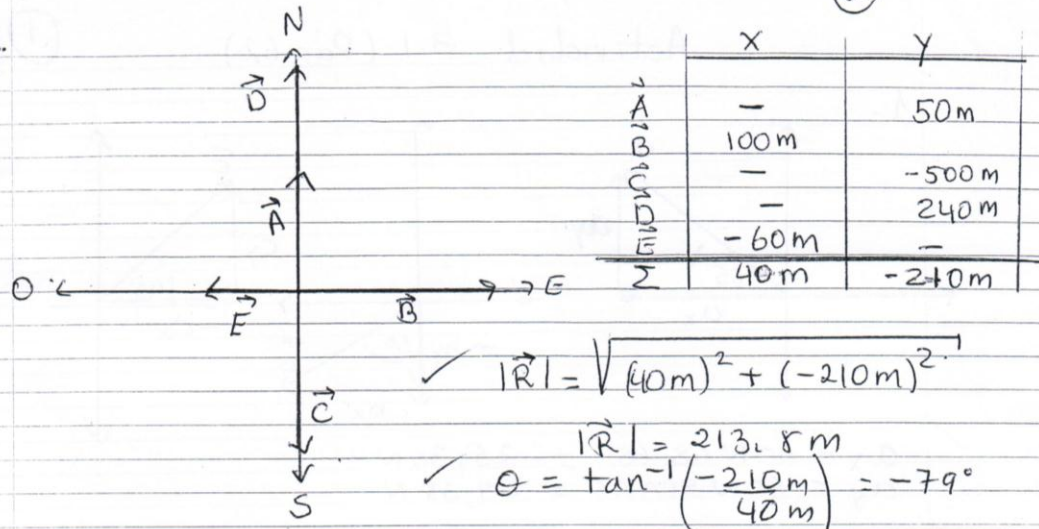 N
D⃗
A⃗
O
E
E⃗
B⃗
C⃗
S
X Y
A⃗ — 50m
B⃗ 100m
C⃗ — -500m
D⃗ — 240m
E⃗ -60m —
Σ 40m -210m
✓ |R⃗| = √(40m)² + (-210m)²
|R⃗| = 213.8m
✓ θ = tan⁻¹(-210m/40m) = -79°